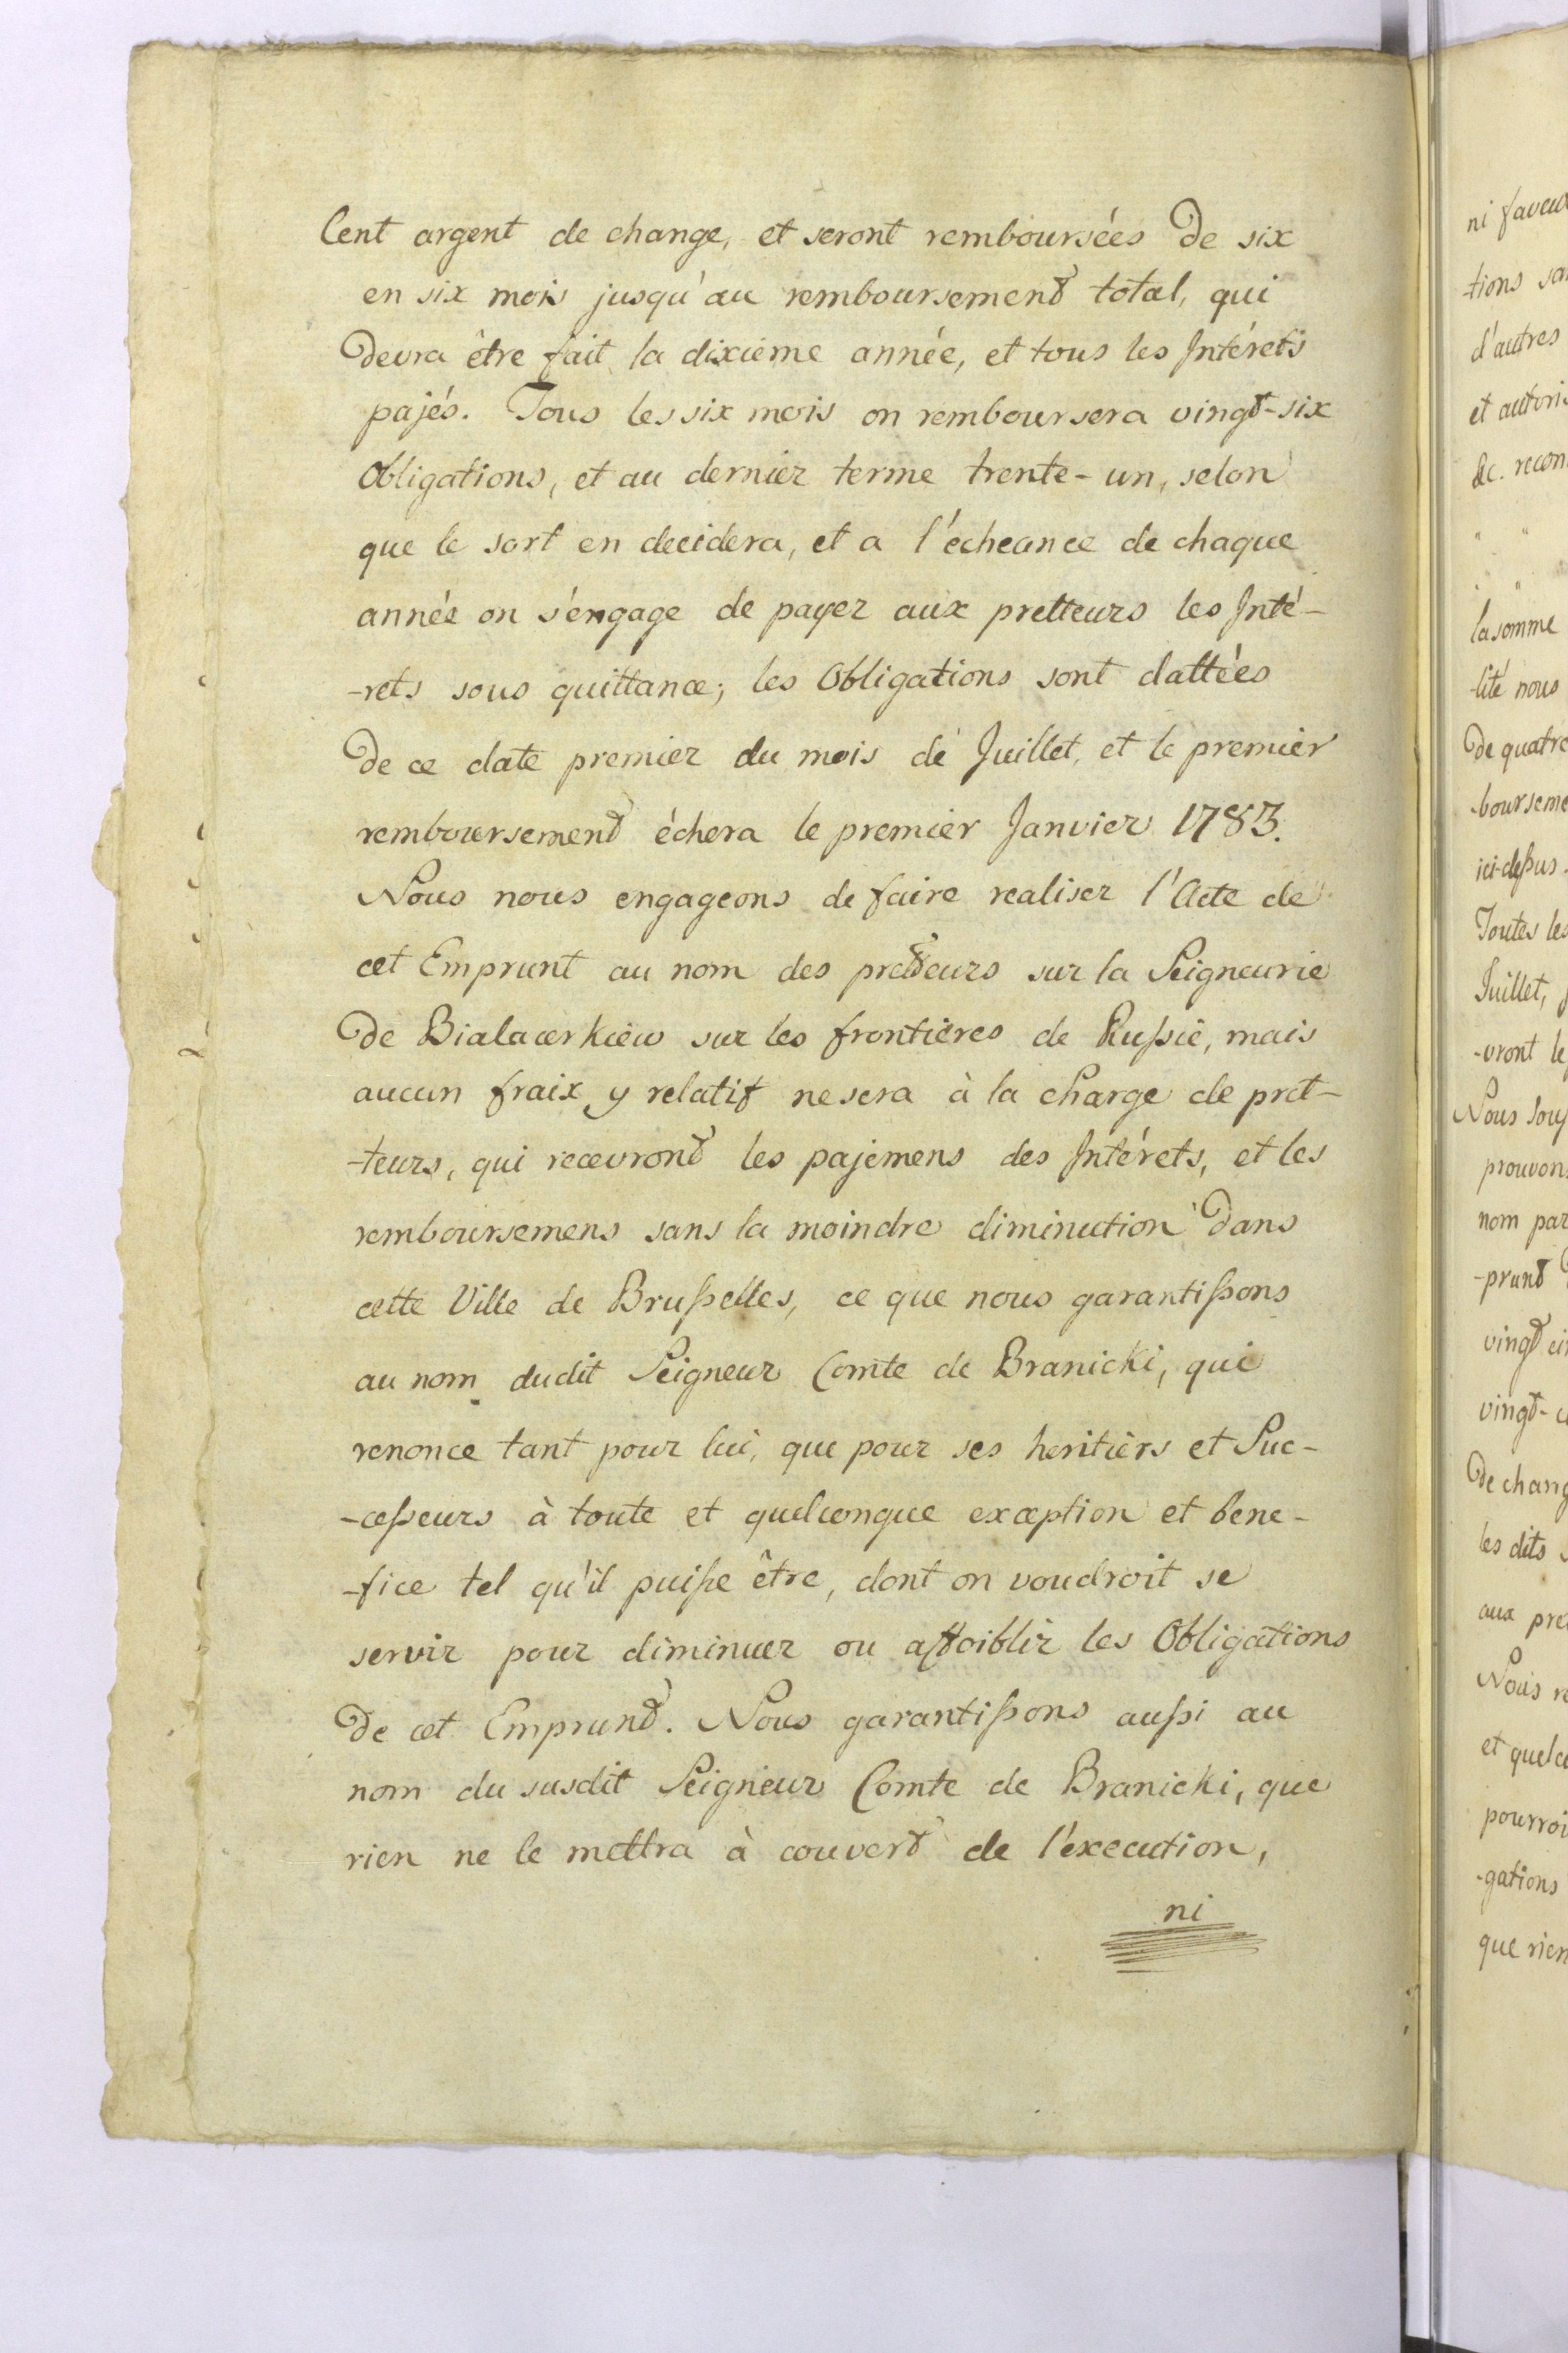 Cent argent de change, et seront remboursées De six
en six mois jusqu'au remboursement total, qui
Devra être fait la dixieme année, et tous les Intérets
pajés. Tous les six mois on remboursera vingt-six
Obligations, et au dernier terme trente-un, selon
que le sort en decidera, et a l'écheance de chaque
année on s'éngage de payer aux pretteurs les Inté-
-rets sous quittance; les Obligations sont dattées
De ce date premier du mois de Juillet, et le premier
remboursement échera le premier Janvier 1783.
Nous nous engageons de faire realiser l'Acte de
cet Emprunt au nom des pretteurs sur la Seigneurie
De Bialacerkiew sur les frontières de Russie, mais
aucun fraix y relatif ne sera à la charge de pret-
-teurs, qui recevront les pajemens des Intérets, et les
remboursemens sans la moindre diminution Dans
cette Ville de Brusselles, ce que nous garantissons
au nom dudit Seigneur Comte de Branicki, qui
renonce tant pour lui, que pour ses heritiers et Suc-
-cesseurs à toute et quelconque exception et bene-
-fice tel qu'il puisse être, dont on voudroit se
servir pour diminuer ou affoiblir les Obligations
De cet Emprunt. Nous garantissons aussi au
nom du susdit Seigneur Comte de Branicki, que
rien ne le mettra à couvert de l'éxecution,
ni
ni faveur
-tions
d'autres
et
&c.
la somme
-lité nous
De quatre
ici-dessus
Toutes les
Juillet,
-vront
Nous
nom par
-prunt
vingt
vingt-
De
les dits
aux
Nous
et
-gations
que rien